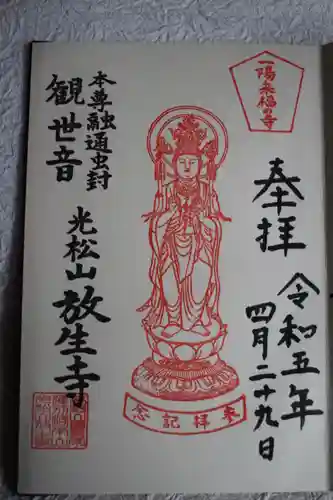 一陽来福の寺
奉拝
令和五年
四月二十九日
參拝記念
本尊融通虫封
観世音
光松山放生寺